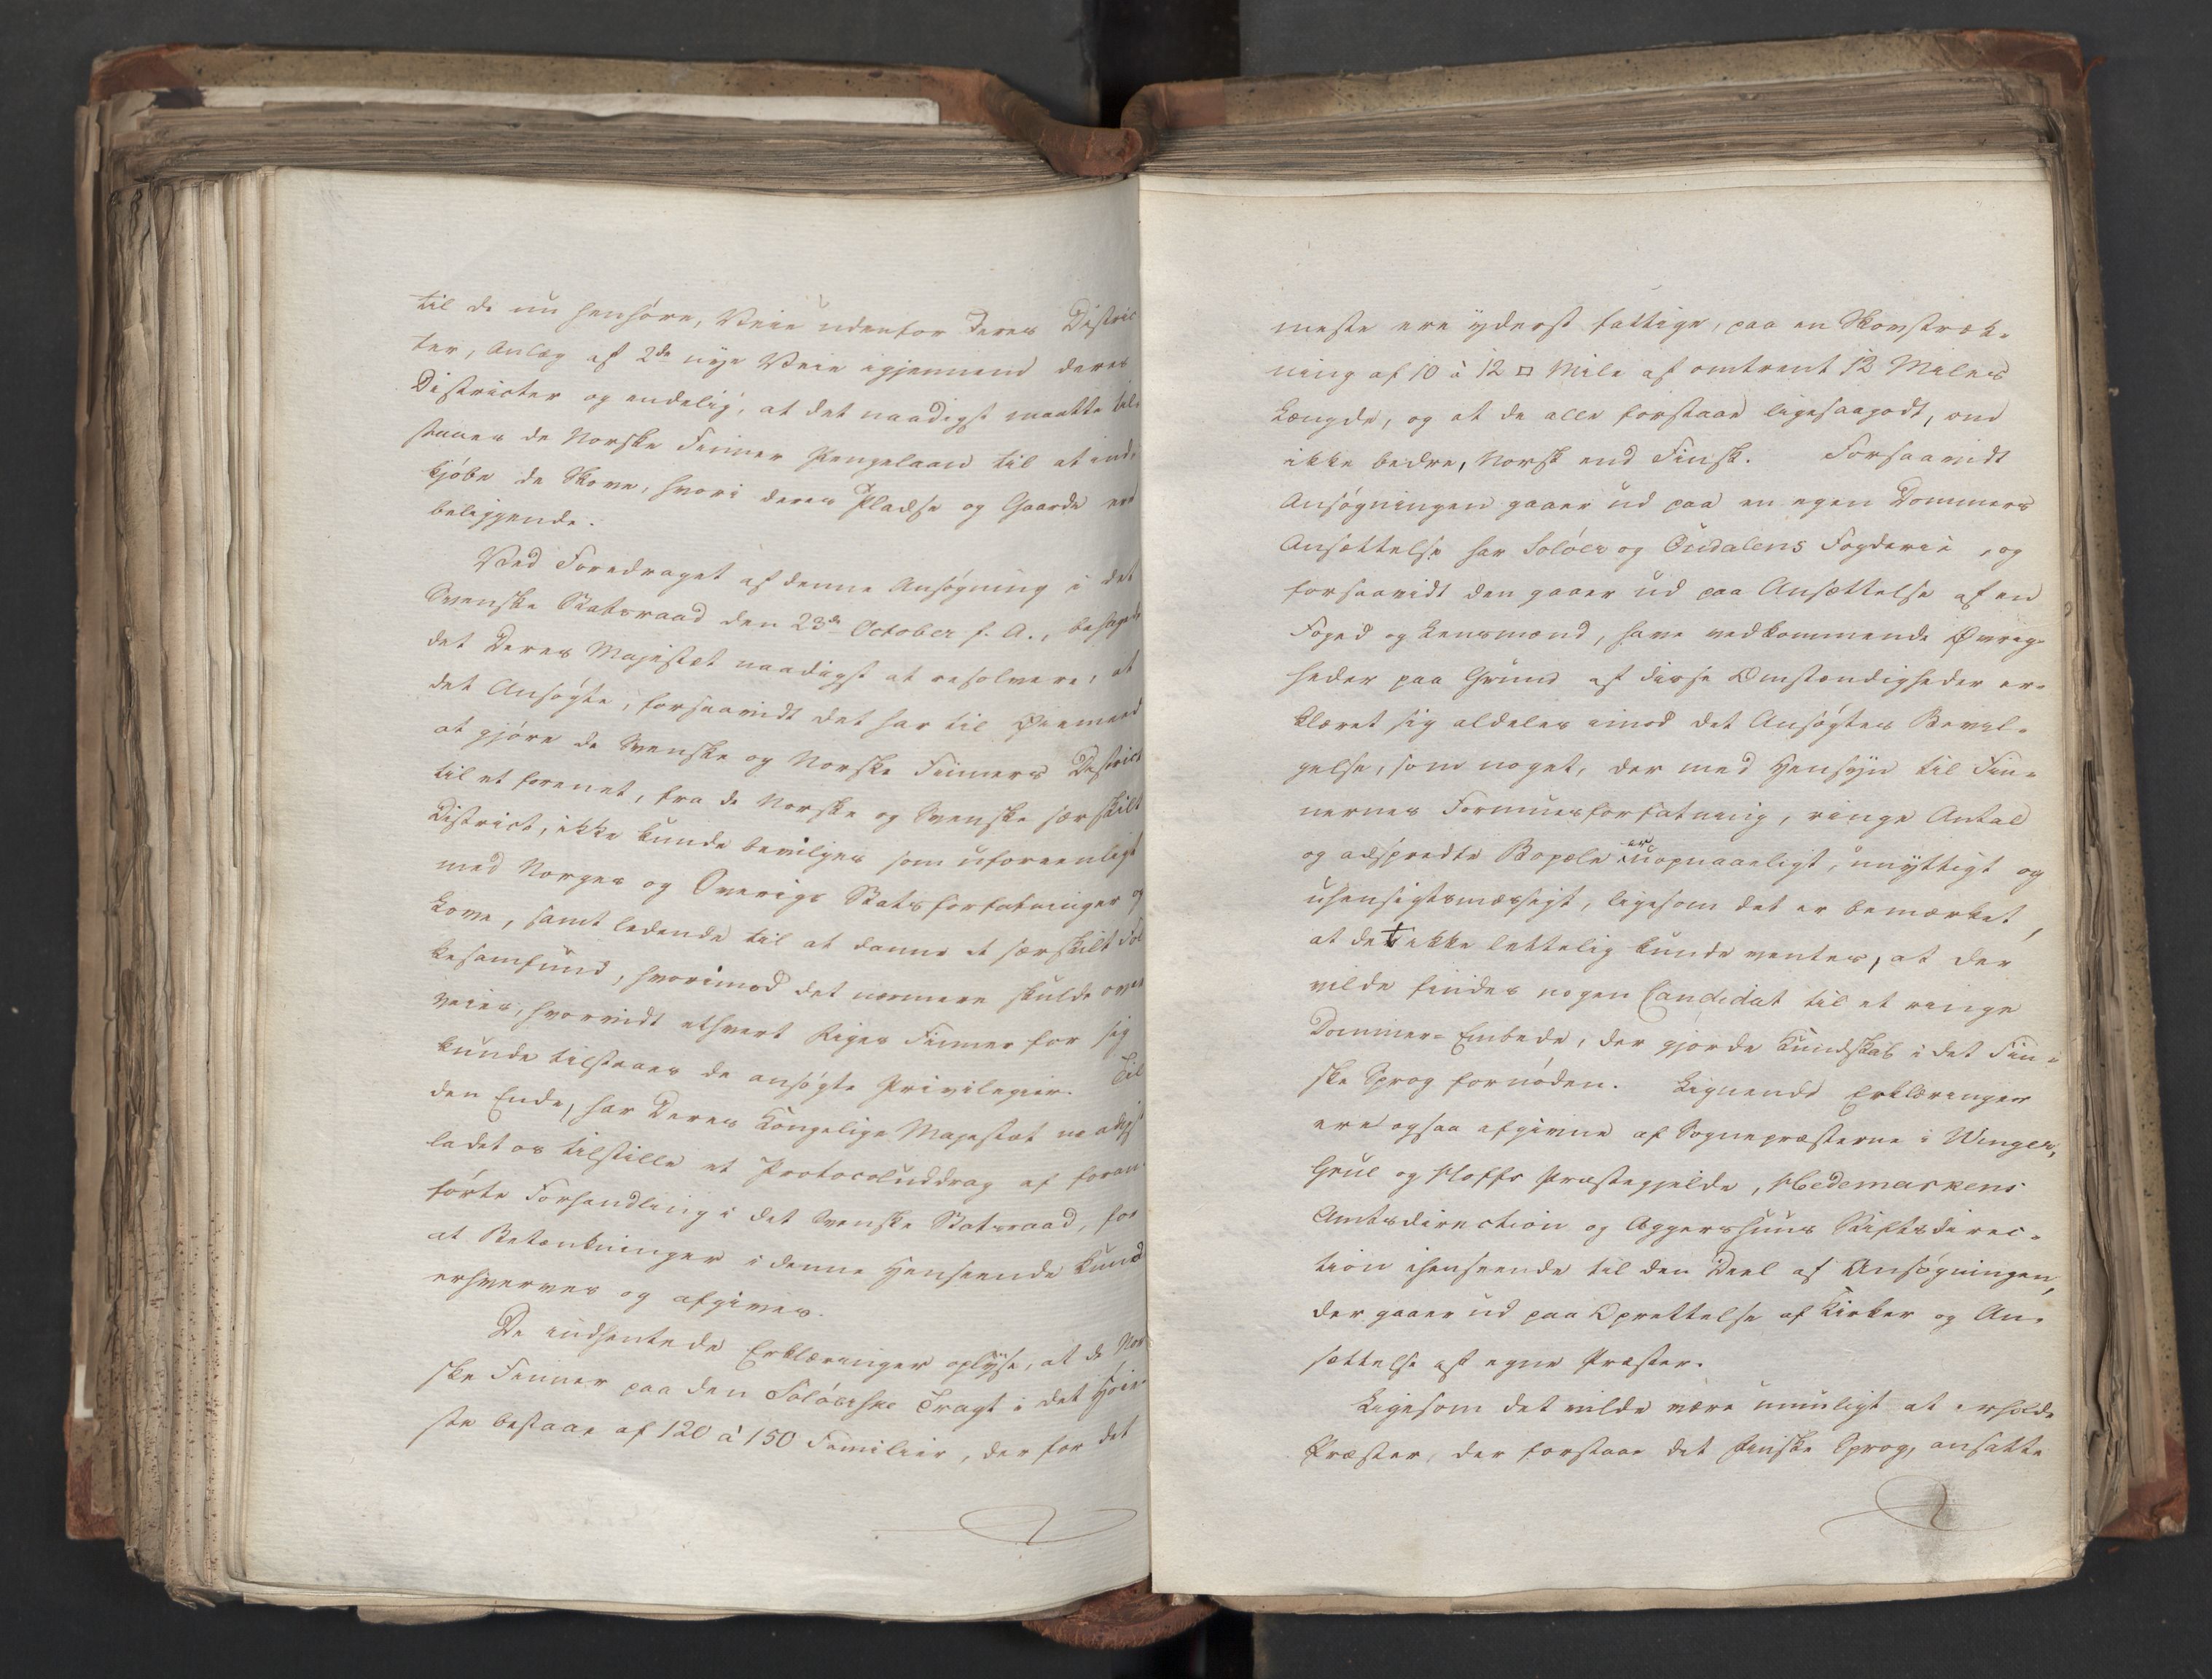 til de nu henhøre, Veie udenfor deres Distric
ter, Anlæg af 2de nye Veie igjennem deres
Districter og endelig, at det naadigst maatte til-
staaes de Norske Finner Pengelaan til at ind-
kjøbe de Skove, hvori deres Pladse og Gaarde ere
beliggende.
Ved Foredraget af denne Ansøgning i det
Svenske Statsraad den 23de October f. A., behagede
det Deres Majestæt naadigst at resolvere, at
det Ansøgte, forsaavidt det har til Øiemeed
at gjøre de Svenske og Norske Finners District
til et forenet, fra de Norske og Svenske særskilt
District, ikke kunde bevilges som uforeenligt
med Norges og Sverigs Statsforfatninger og
Love, samt ledende til at danne et særskilt Fol
kesamfund, hvorimod det nærmere skulde over
veies, hvorvidt ethvert Riges Finner for sig
kunde tilstaaes de ansøgte Privilegier. Til
den Ende, har Deres Kongelige Majestæt naadigst
ladet os tilstille et Protocoludrag af foran-
førte Forhandling i det Svenske Statsraad, for
at Betænkninger i denne Henseende kunde
erhverves og afgives.
De indhentede Erklæringer oplyse, at de Nor
ske Finner paa den Solöerske Tragt i det Høie-
ste bestaae af 120 à 150 Familier, der for det
meste ere yderst fattige, paa en Skovstræk-
ning af 10 à 12 □ Mile af omtrent 12 Miles
Længde, og at de alle forstaae ligesaagodt, om
ikke bedre, Norsk end Finsk. Forsaavidt
Ansøgningen gaaer ud paa en egen Dommers
Ansættelse har Solöer og Oudalens Fogderie, og
forsaavidt den gaaer ud paa Ansættelse af en
Foged og Lensmænd, have vedkommende Øvrig-
heder paa Grund af disse Omstændigheder er-
klæret sig aldeles imod det Ansøgtes Bevil-
gelse, som noget, der med Hensyn til Fin-
nernes Formuesforfatning, ringe Antal
og adspredte Bopæle er uopnaaeligt, unyttigt og
uhensigtsmæssigt, ligesom det er bemærket,
at det ikke lettelig kunde ventes, at der
vilde findes nogen Candidat til et ringe
Dommer-Embede, der gjorde Kundskab i det Fin-
ske Sprog fornøden. Lignende Erklæringer
ere ogsaa afgivne af Sognepræsterne i Winger,
Grue og Hoffs Præstegjelde, Hedemarkens
Amtsdirection og Aggershuus Stiftsdirec-
tion ihenseende til den Deel af Ansøgningen,
der gaaer ud paa Oprettelse af Kirker og An-
sættelse af egne Præster.
Ligesom det vilde være umuligt at erholde
Præster, der forstaae det finske Sprog, ansatte